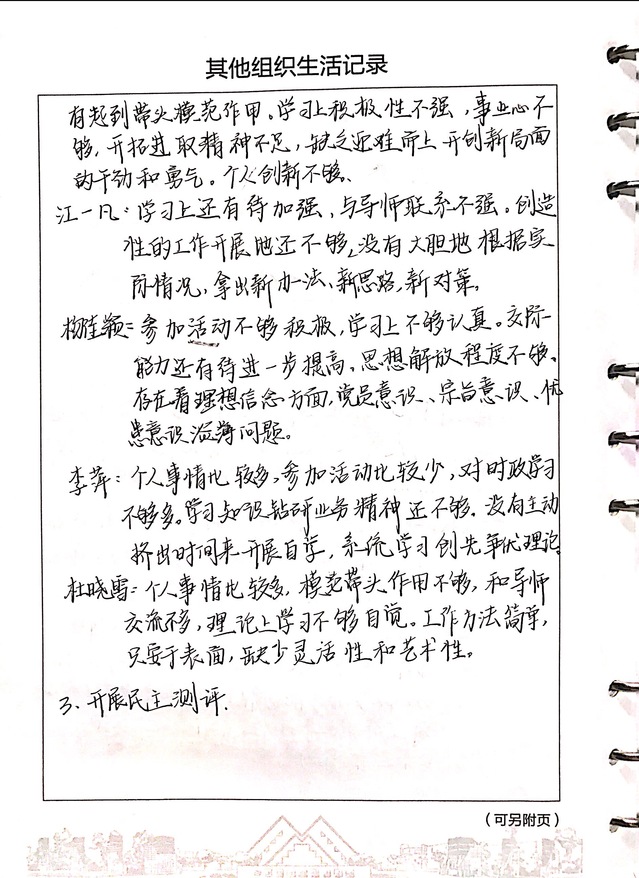 其他组织生活记录
有起到带头模范作用。学习上积极性不强，事业心不
够，开拓进取精神不足，缺乏迎难而上开创新局面
的干劲和勇气。个人创新不够、
江一凡：学习上还有待加强、与导师联系不强。创造
性的工作开展地还不够，没有大胆地根据实
际情况，拿出新办法、新思路，新对策。
杨佳颖：参加活动不够积极，学习上不够认真。交际
能力还有待进一步提高。思想解放程度不够。
存在着理想信念方面，党员意识、宗旨意识、忧
患意识淡薄问题。
李萍：个人事情比较多，参加活动比较少，对时政学习
不够多。学习知识钻研业务精神还不够。没有主动
挤出时间来开展自学，系统学习创先争优理论。
杜晓雪：个人事情比较多，模范带头作用不够，和导师
交流不多，理论上学习不够自觉。工作方法简单，
只要于表面，缺少灵活性和艺术性。
3、开展民主测评.
（可另附页）